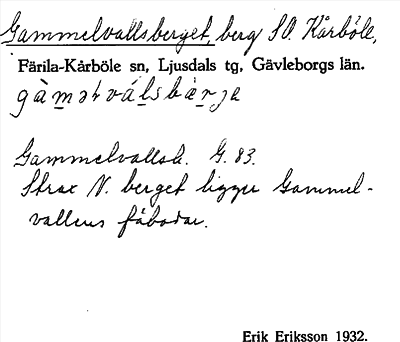 Gammelvallsberget, berg SO. Kårböle,
Färila-Kårböle sn, Ljusdals tg, Gävleborgs län.
gàm̲ətvál̲sbær̲ja
Gammelvallsb. G. 83.
Strax N. berget ligger Gammel-
vallens fäbodar.
Erik Eriksson 1932.